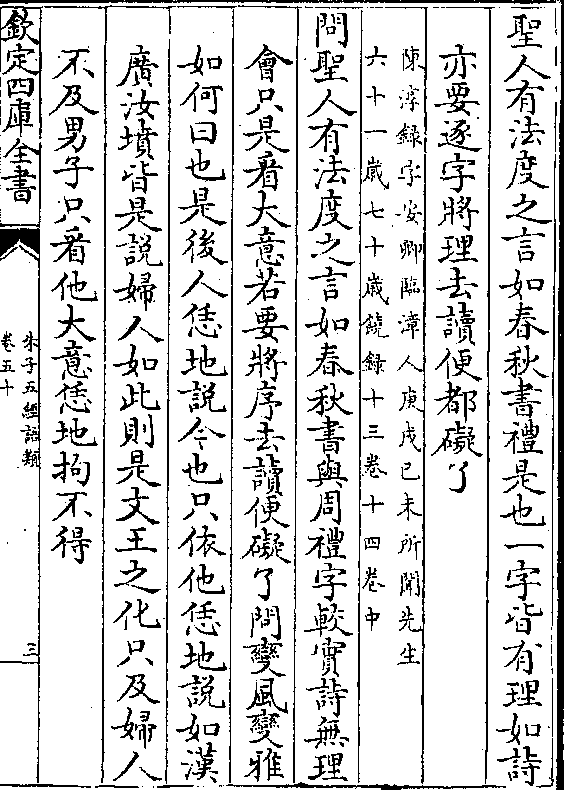 聖人有法度之言如春秋書禮是也一字皆有理如詩
亦要逐字將理去讀便都礙了
陳淳録字安卿臨漳人庚戌己未所聞先生
六十一嵗七十嵗饒録十三卷十四卷中
問聖人有法度之言如春秋書與周禮字較實詩無理
會只是看大意若要將序去讀便礙了問變風變雅
如何曰也是後人恁地説今也只依他恁地説如漢
廣汝墳皆是説婦人如此則是文王之化只及婦人
不及男子只看他大意恁地拘不得
欽定四庫全書
朱子五經語類
卷五十
三